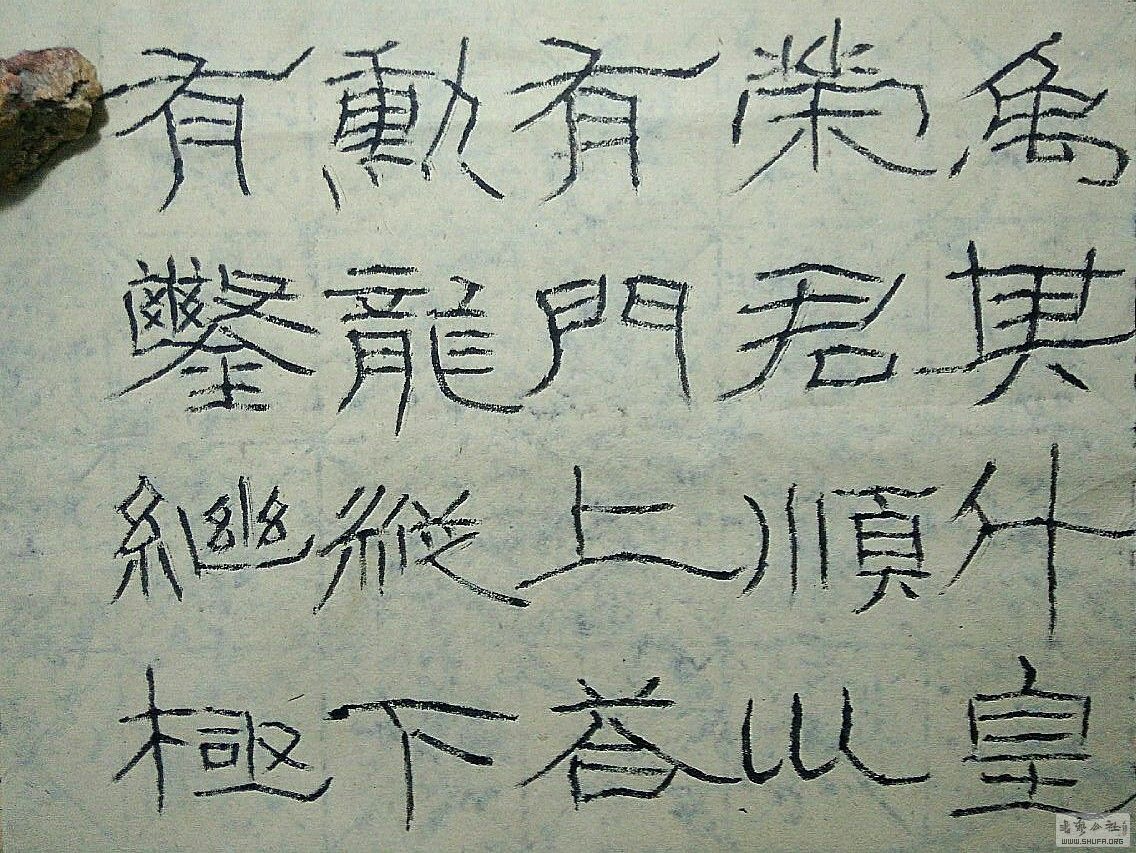 有勳有榮禹
鑿龍門君其
繼縱上順斗
極下荅巛皇
WWW.SHUFA.ORG